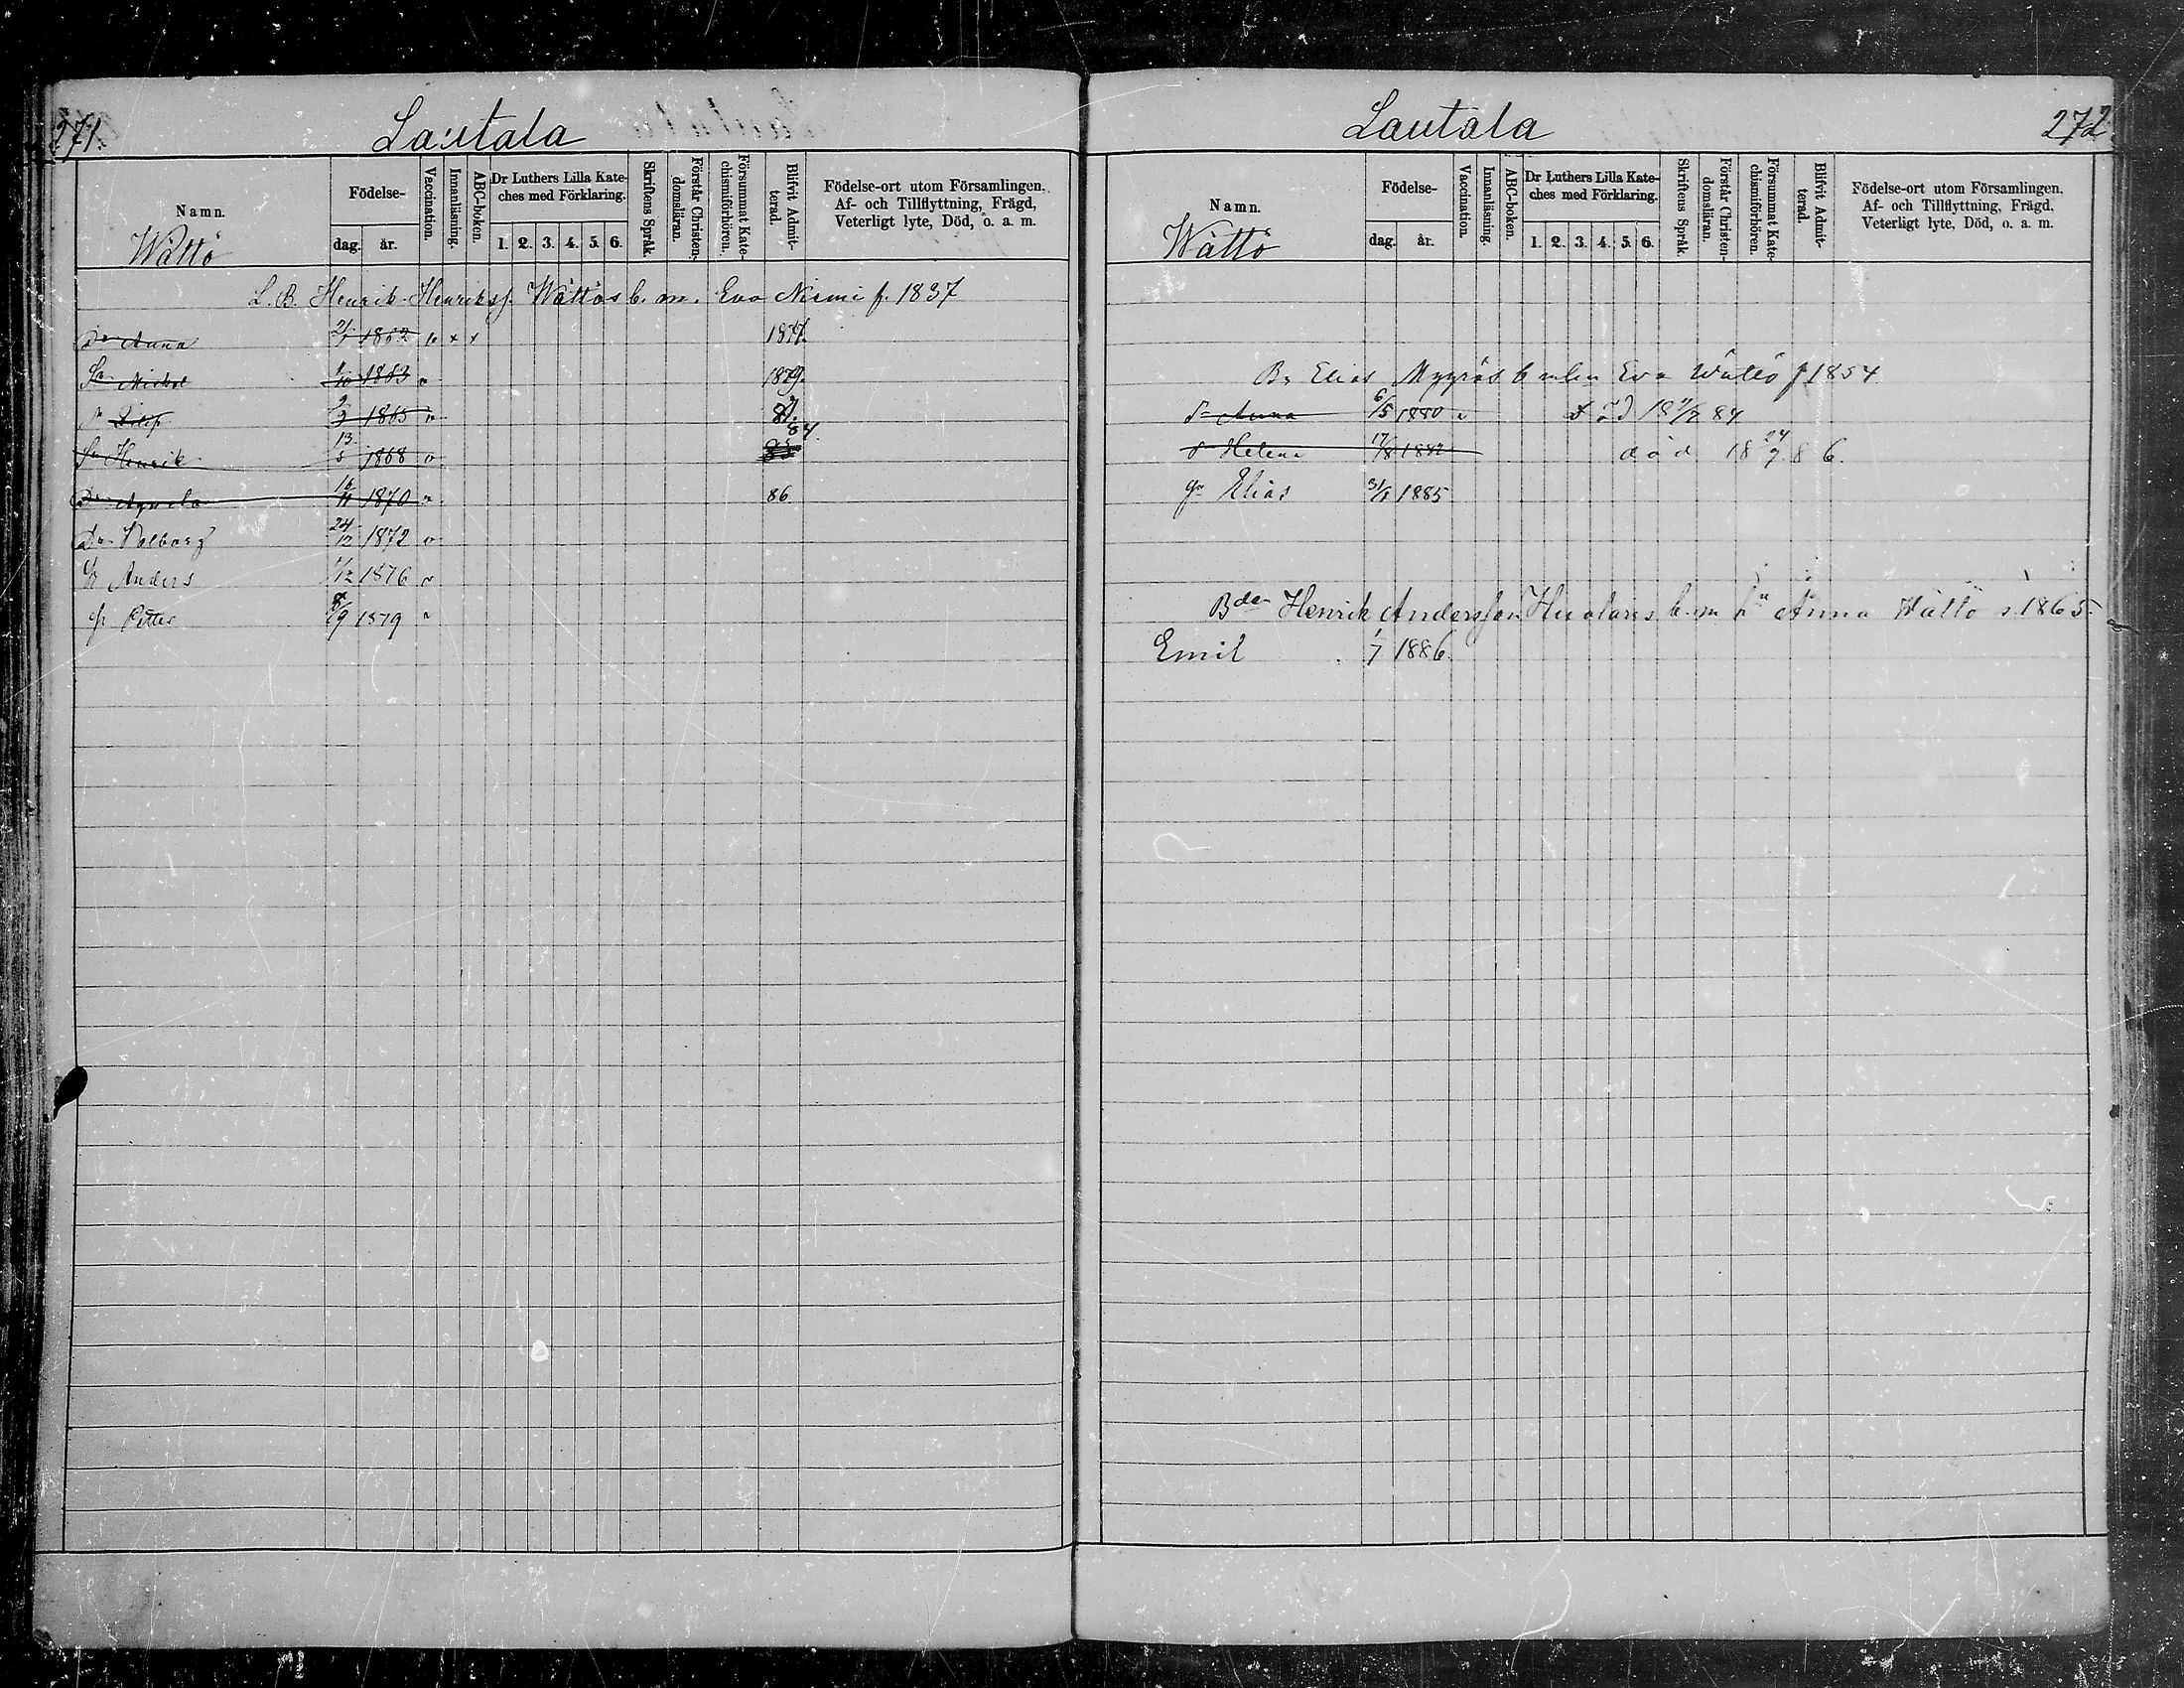 271.
Lautala
Namn.
Wättö
Födelse-
dag.
år.
Vaccination.
Innanläsning.
ABC-boken.
Dr Luthers Lilla Kate-
ches med Förklaring.
1. 2. 3. 4. 5. 6.
Skriftens Språk.
Förstår Christen-
domsläran.
Försummat Kate-
chismiförhören.
Blifvit Admit-
terad.
Födelse-ort utom Församlingen,
Af- och Tillflyttning, Frägd,
Veterligt lyte, Död, o. a. m.
L. B. Henrik Henrikss. Wättös b. m. Eva Niemi f. 1837
Dr Anna 21/1 1862 v + + 1877.
Sn Michel 1/10 1863 v 1879.
1865
Sn Henrik 13/5 1868 v 84.
1870 86
Dr Walborg 24/12 1872 v
Anders 1/12 1876 v
Petter 8/9 1879
272
Lautala
Namn.
Wättö
Födelse-
dag.
år.
Vaccination.
Innanläsning.
ABC-boken.
Dr Luthers Lilla Kate-
ches med Förklaring.
1. 2. 3. 4. 5. 6.
Skriftens Språk.
Förstår Christen-
domsläran.
Försummat Kate-
chismiförhören.
Blifvit Admit-
terad.
Födelse-ort utom Församlingen,
Af- och Tillflyttning, Frägd,
Veterligt lyte, Död, o. a. m.
Elias Myyräs b Eva Wättö f 1854
Anna 6/5 1880 död
Helena 17/8 1882 död 18 24/7 86.
Elias 31/1 1885
Bden Henrik Andersson b. m. Anna Wättö f. 1865
Emil 1/7 1886.